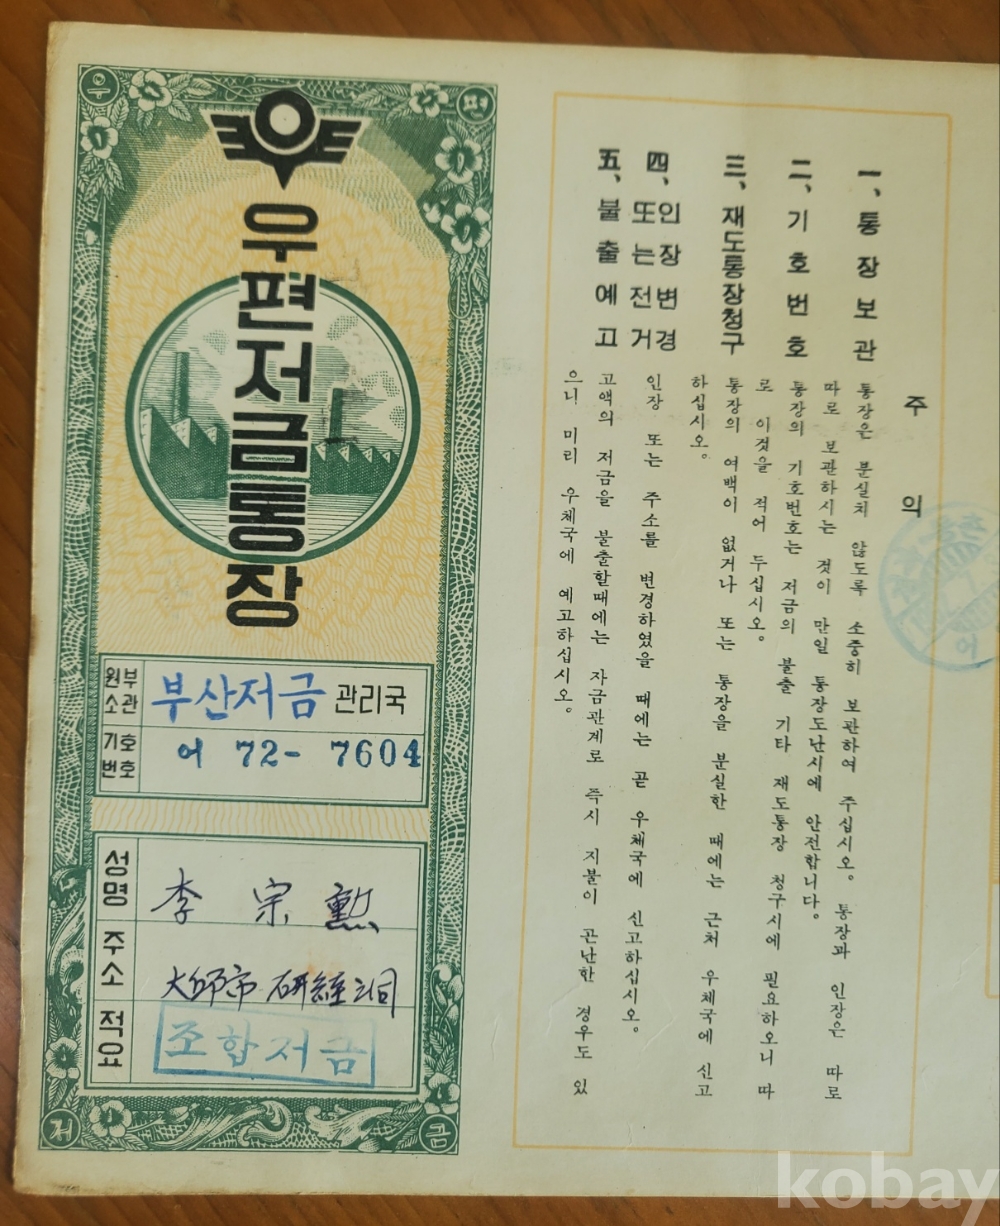 우
편
우편저금통장
원부
소관
부산저금 관리국
기호
번호
어 72- 7604
성명
李 宗 勲
주소
大邱市
적요
조합저금
저
금
주의
一、통장보관
통장은 분실치 않도록 소중히 보관하여 주십시오。 통장과 인장은 따로
따로 보관하시는 것이 만일 통장도난시에 안전합니다。
二、기호번호
통장의 기호번호는 저금의 불출 기타 재도통장 청구시에 필요하오니 따
로 이것을 적어 두십시오。
三、재도통장청구
통장의 여백이 없거나 또는 통장을 분실한 때에는 근처 우체국에 신고
하십시오。
四、인장변경
또는전거
인장 또는 주소를 변경하였을 때에는 곧 우체국에 신고하십시오。
五、불출예고
고액의 저금을 불출할때에는 자금관계로 즉시 지불이 곤난한 경우도 있
으니 미리 우체국에 예고하십시오。
어
kobay